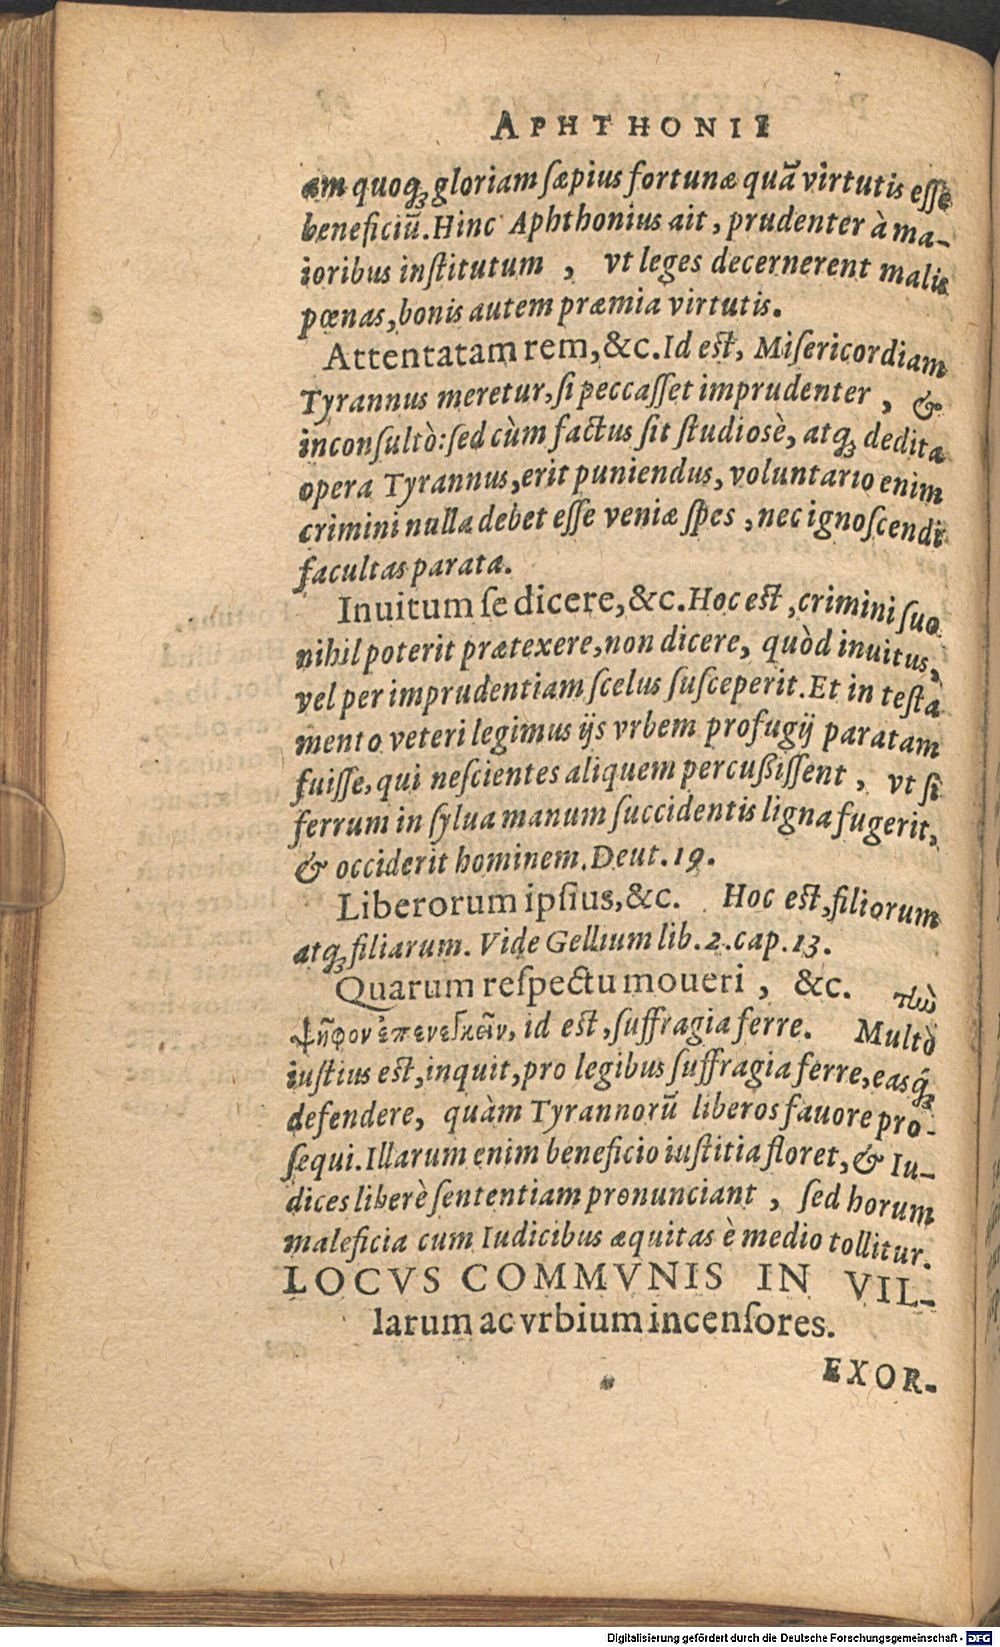 APHTHONII
am quoqꝫ gloriam ſæpius fortunæ quã virtutis eſſe
beneficiũ. Hinc Aphthonius ait, prudenter à ma-
ioribus inſtitutum, vt leges decernerent malis
pœnas, bonis autem præmia virtutis.
Attentatam rem, &c. Id eſt, Miſericordiam
Tyrannus meretur, ſi peccaſſet imprudenter, &
inconſultò: ſed cùm factus ſit ſtudiosè, atqꝫ dedita
opera Tyrannus, erit puniendus, voluntario enim
crimini nulla debet eſſe veniæ ſpes, nec ignoſcendi
facultas parata.
Inuitum ſe dicere, &c. Hoc eſt, crimini ſuo
nihil poterit prætexere, non dicere, quòd inuitus,
vel per imprudentiam ſcelus ſuſceperit. Et in teſta
mento veteri legimus ijs vrbem profugij paratam
fuiſſe, qui neſcientes aliquem percußiſſent, vt ſi
ferrum in ſylua manum ſuccidentis ligna fugerit,
& occiderit hominem. Deut. 19.
Liberorum ipſius, &c. Hoc eſt, filiorum
atqꝫ filiarum. Vide Gellium lib. 2. cap. 13.
Quarum reſpectu moueri, &c. τὼ
ψῆφον ἐπενεγκεῖν, id eſt, ſuffragia ferre. Multò
iuſtius eſt, inquit, pro legibus ſuffragia ferre, easqꝫ́
defendere, quàm Tyrannorũ liberos fauore pro-
ſequi. Illarum enim beneficio iuſtitia floret, & Iu-
dices liberè ſententiam pronunciant, ſed horum
maleficia cum Iudicibus æquitas è medio tollitur.
LOCVS COMMVNIS IN VIL-
larum ac vrbium incenſores.
EXOR-
Digitalisierung gefördert durch die Deutsche Forschungsgemeinschaft - DFG